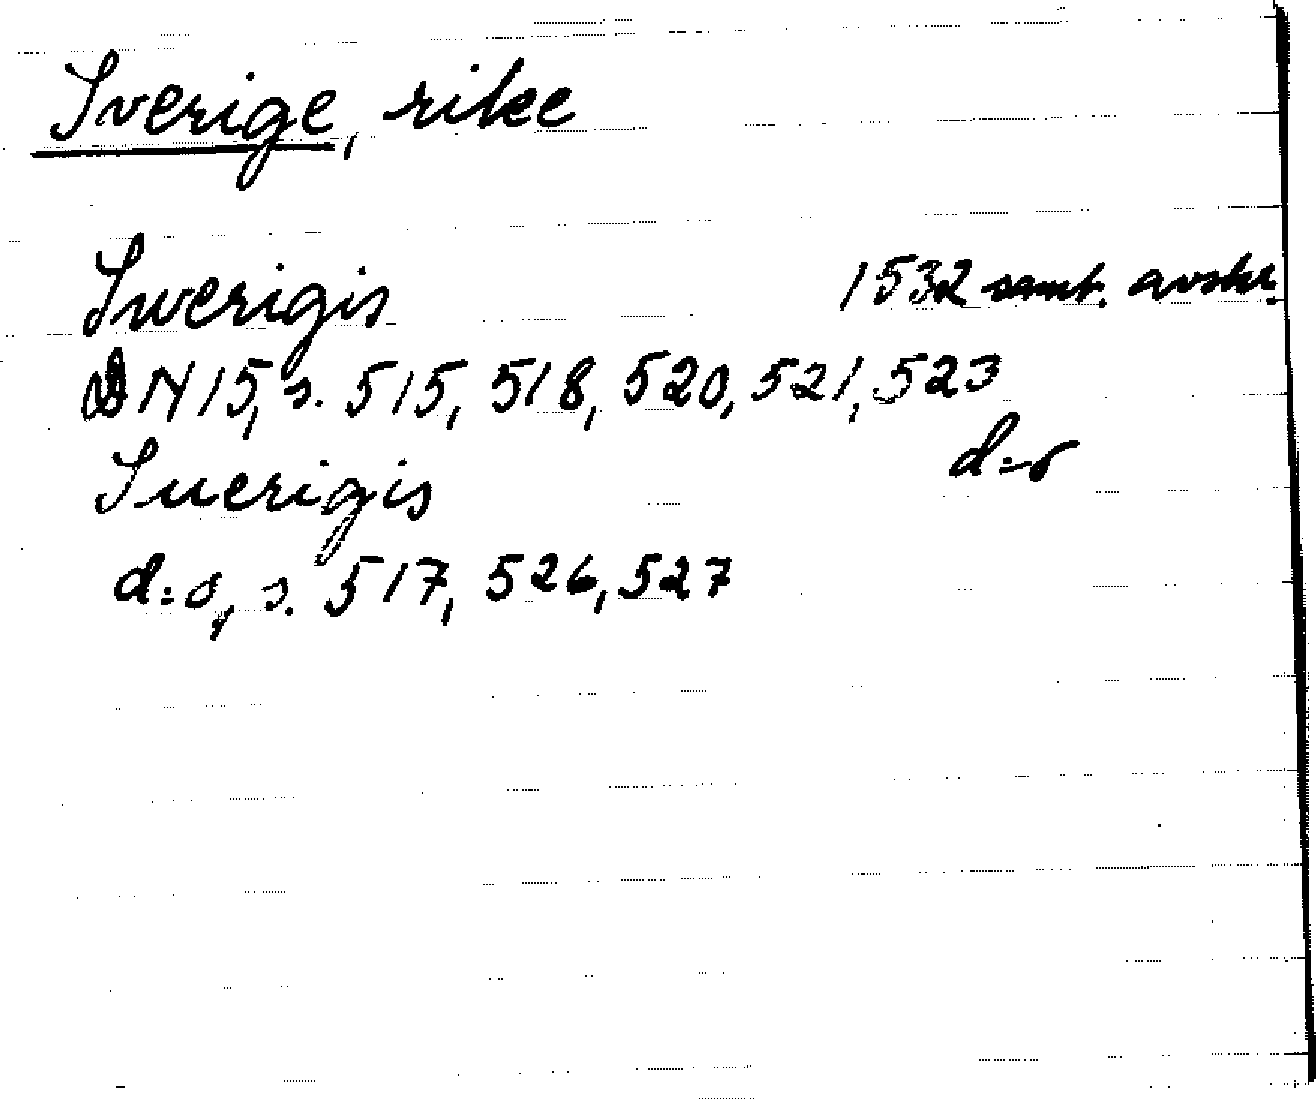 Sverige, rike
Swerigis 1532 samt. avskr.
DN 15, s. 515, 518, 520, 521, 523
Suerigis d:o
d:o, s. 517, 526, 527